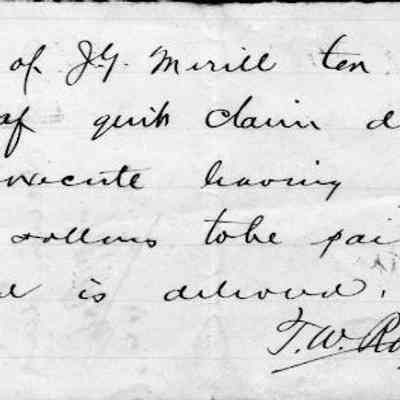 of J.Y. Merill ten
of quik claim d
execute leaving
dollers tobe pai
is delivered.
T.W. Ro